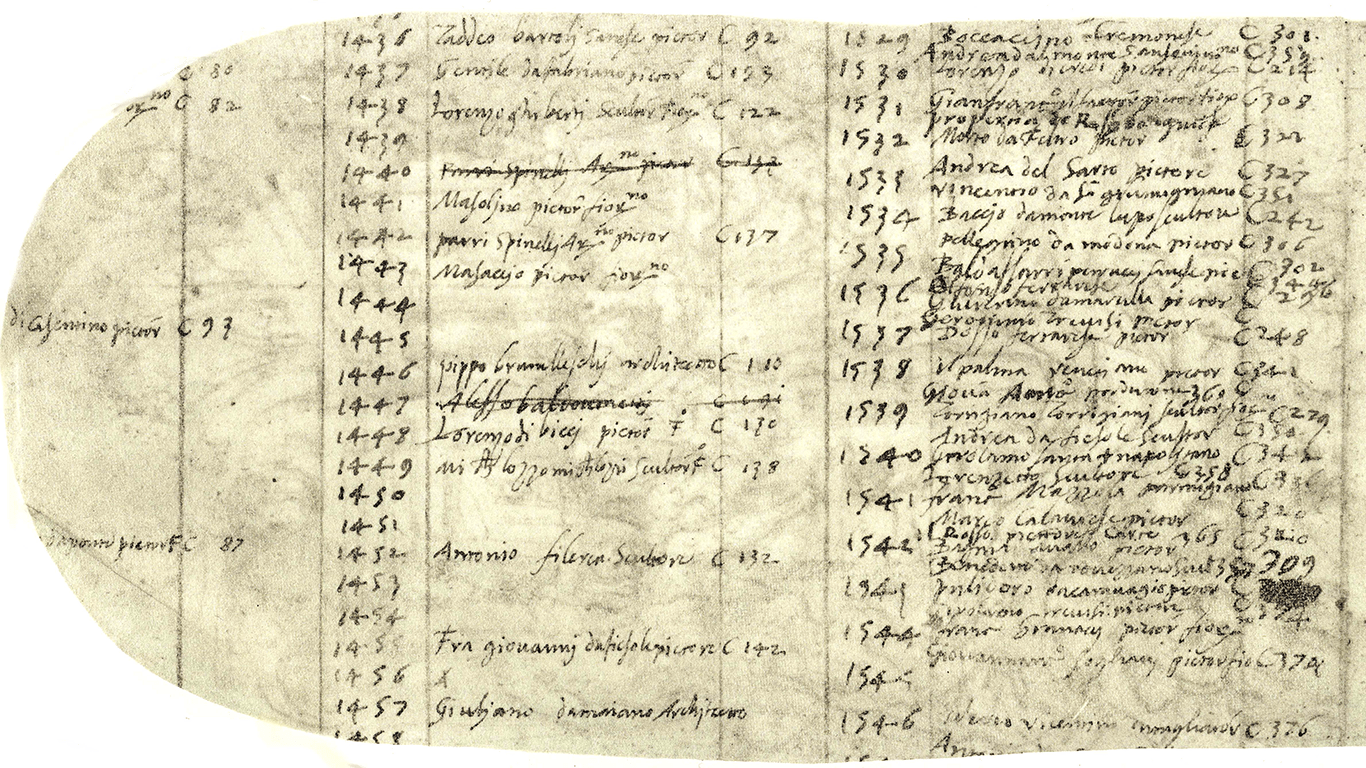 C 80
C 82
di Casentino pictor C 93
davante pictor F C 87
1436 Taddeo bartoli Sanese pictor C 92
1437 Gentile dafabriano pictor C 123
1438 Lorenzo ghiberti Scultor fior.no C 122
1439
1440 Parri Spinelli Ar.no pictor C 137
1441 Masolino pictor fior.no
1442 parri Spinelli Ar.no pictor C 137
1443 Masaccio pictor fior.no
1444
1445
1446 pippo brunelleschi architetto C 110
1447 Alesso baldovinetti C
1448 Lorenzo di bicci pictor F C 130
1449 Michelozzo michelozi Scultor F C 138
1450
1451
1452 Antonio filerea Scultore C 132
1453
1454
1455 Fra giovanni dafiesole pictore C 142
1456 x
1457 Giuliano damaiano Architetto
1458
1529 Boccaccino Cremonese C 301
Andrea da monte Sansovino C 359
1530 Lorenzo di credi pictor fior C 214
1531 Gianfranc.o pictor fior C 308
propertia de Rossi
1532 Morto da Feltro Pictor C 322
1533 Andrea del Sarto pictore C 327
Vincentio da S. gimignano C 351
1534 Baccio damonte lupo scultore C 242
1535 pellegrino da modena pictor C 306
Baldassarri peruzzi sanese pic C 302
1536 Alfonso ferrarese C 344
pictor C 296
Gerolimo Trevisi pictor
1537 Dosso ferrarese pictor C 248
1538 il palma venetiano pictor C 341
Giovā Antō pordenone 369 C
1539 scultor fior C 279
Andrea da fiesole scultor C 130
1540 Girolamo santa + napolitano C 345
Lorenzetto Scultore C 358
1541 franc.o Mazzola parmigiano C 336
Marco Calavrese pictor C 320
1542 il Rosso pictore Carte 365
pictor
Benedetto da rovezzano 309
1543 pulidoro dacaravagio pictor C
Girolamo trevisi pictor
1544 franc.o Granacci pictor fior.no
Giovannant.o sogliani pictor fio C 374
1545
1546 vicentin intagliator C 376